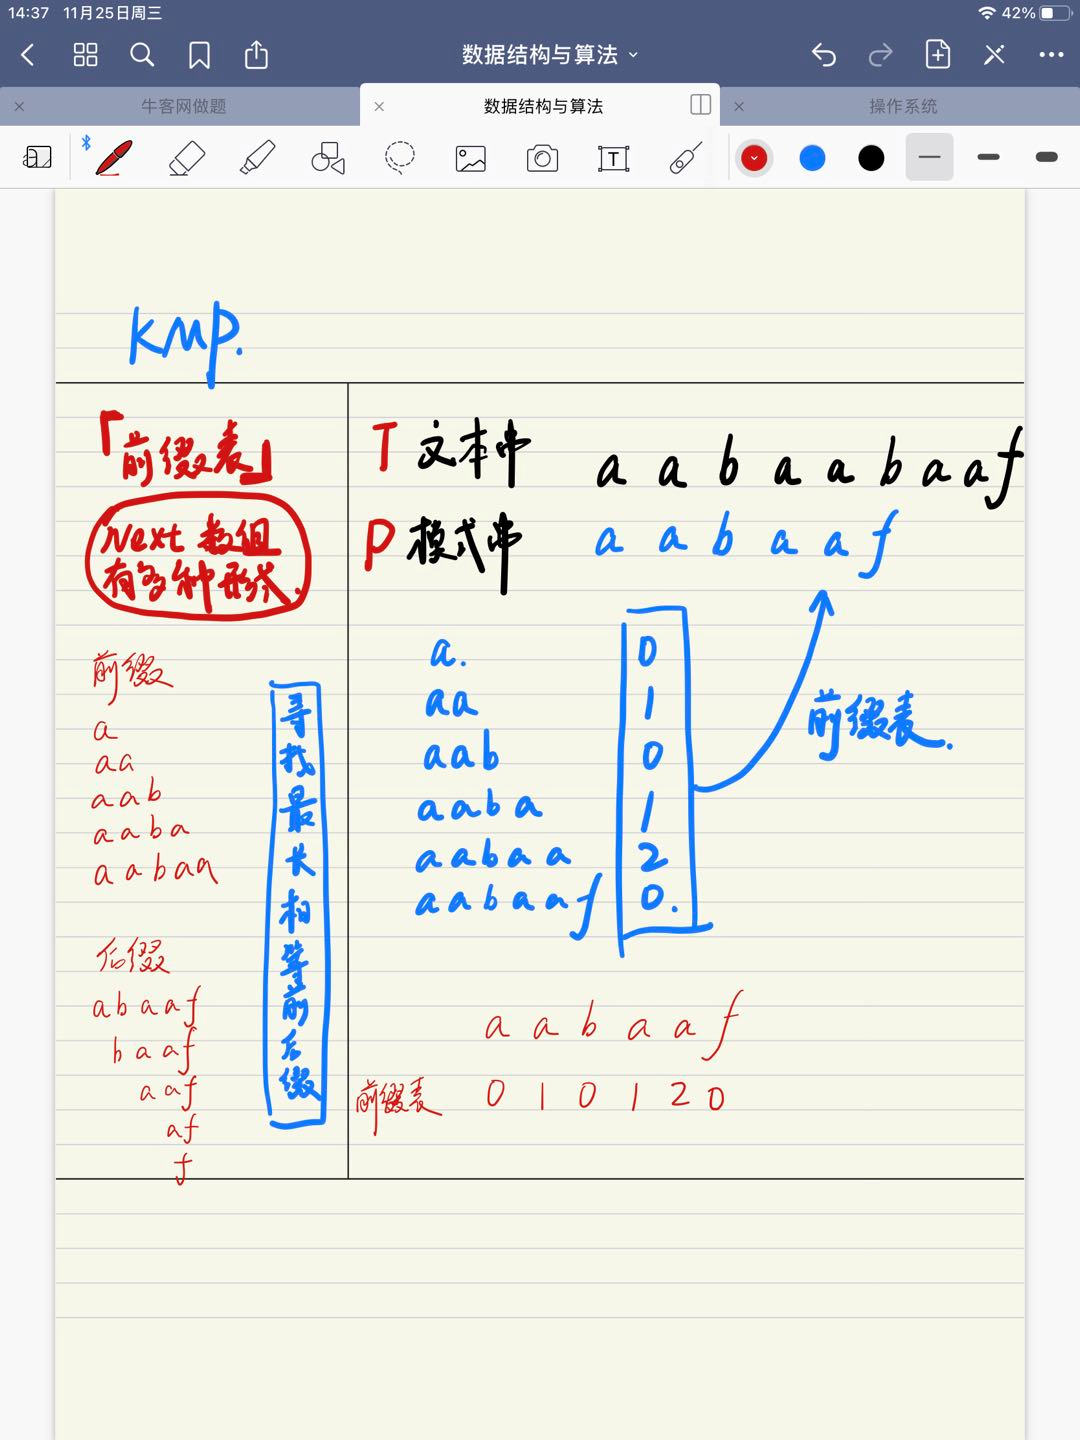 14:37 11月25日周三 42%
数据结构与算法
牛客网做题 数据结构与算法 操作系统
KMP.
「前缀表」
Next 数组
有多种形式.
前缀
a
aa
aab
aaba
aabaa
后缀
abaaf
baaf
aaf
af
f
寻找最长相等前后缀
T 文本串 a a b a a b a a f
P 模式串 a a b a a f
a. 0
aa 1
aab 0
aaba 1
aabaa 2
aabaaf 0.
前缀表.
a a b a a f
前缀表 0 1 0 1 2 0